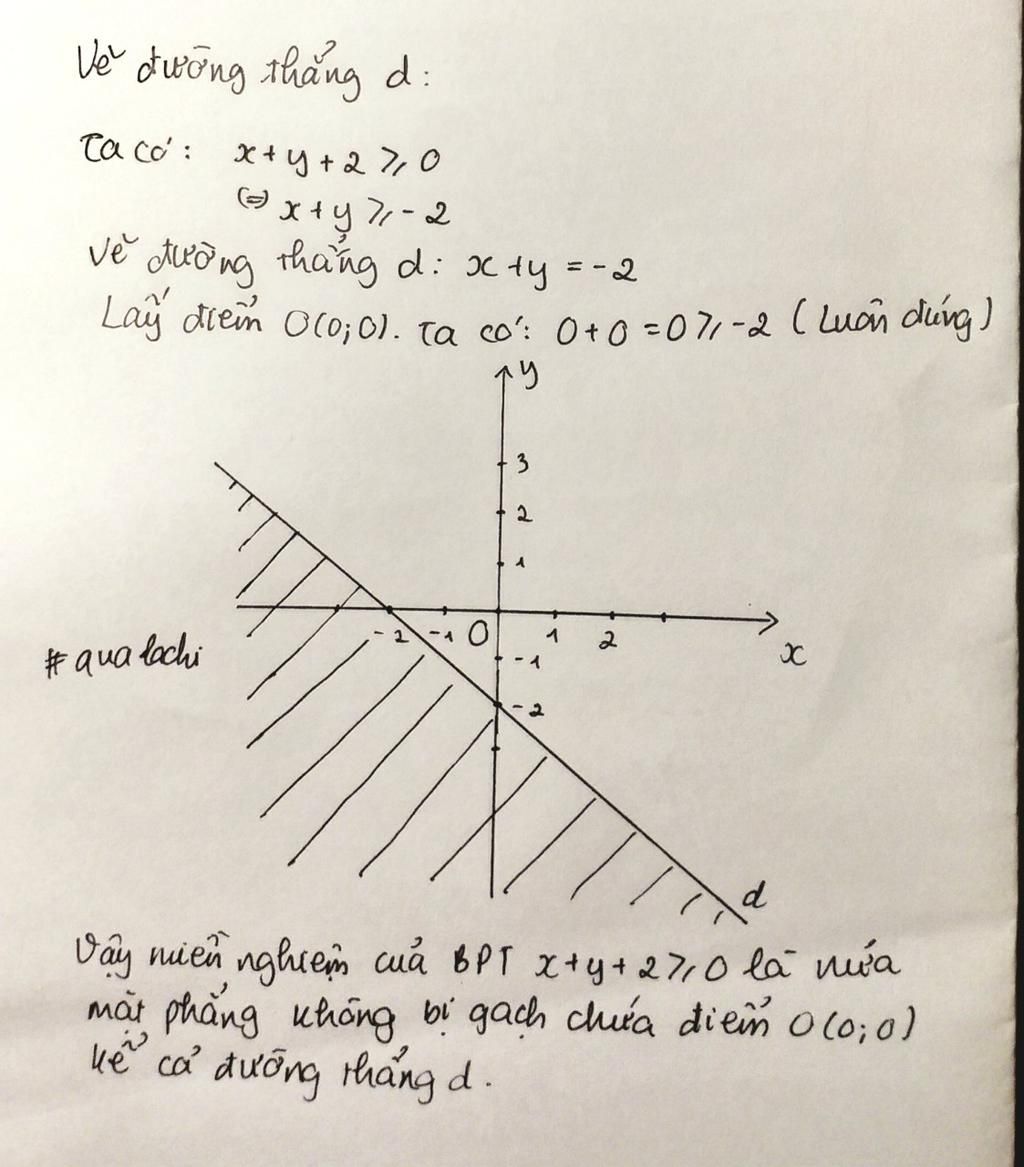 Vẽ đường thẳng d:
Ta có: x+y+2 ⩾ 0
(=) x+y ⩾ -2
Vẽ đường thẳng d: x+y = -2
Lấy điểm O(0;0). Ta có: 0+0 = 0 ⩾ -2 (Luôn đúng)
y
3
2
1
-2 -1 O 1 2
x
-1
-2
# qua lachi
d
Vậy miền nghiệm của BPT x+y+2 ⩾ 0 là nửa
mặt phẳng không bị gạch chứa điểm O(0;0)
kể cả đường thẳng d.